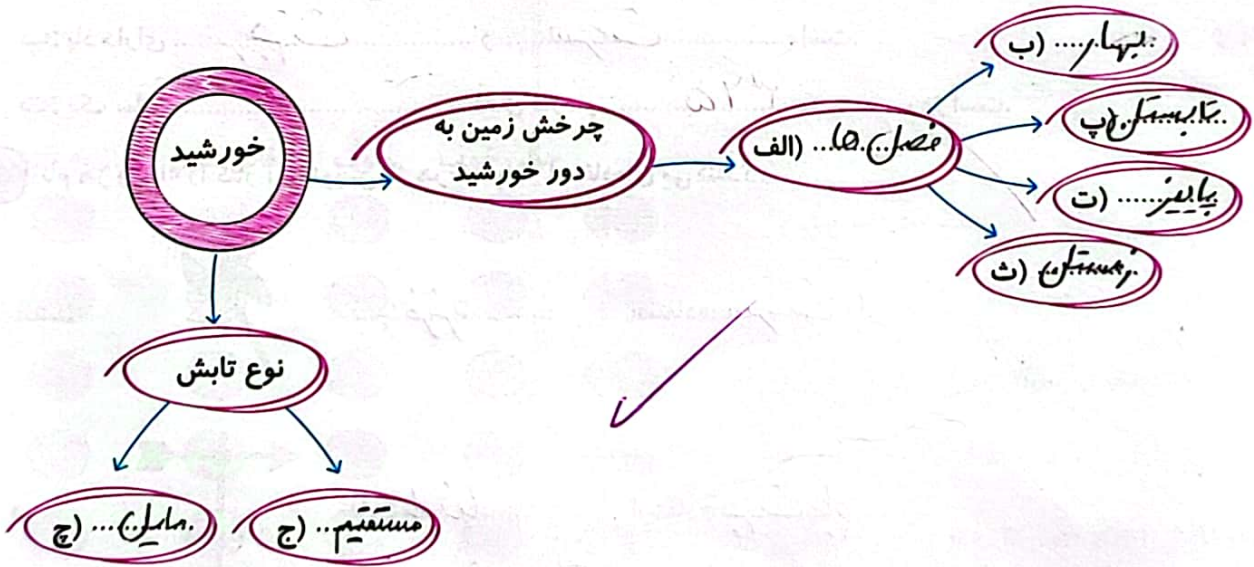 خورشید
چرخش زمین به
دور خورشید
الف) فصل ها
ب) بهار
پ) تابستان
ت) پاییز
ث) زمستان
نوع تابش
ج) مستقیم
چ) مایل